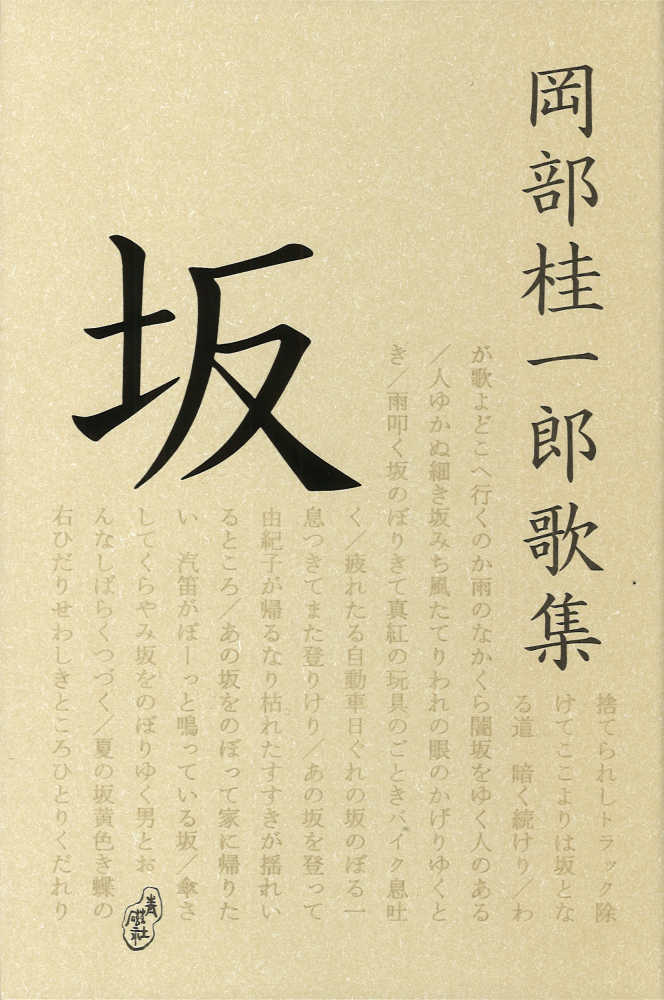 岡部桂一郎歌集
坂
捨てられしトラック除
けてここよりは坂とな
る道　暗く続けり／わ
が歌よどこへ行くのか雨のなかくら闇坂をゆく人のある
／人ゆかぬ細き坂みち風たてりわれの眼のかげりゆくと
き／雨叩く坂のぼりきて真紅の玩具のごときバイク息吐
く／疲れたる自動車日ぐれの坂のぼる一
息つきてまた登りけり／あの坂を登って
由紀子が帰るなり枯れたすすきが揺れい
るところ／あの坂をのぼって家に帰りた
い　汽笛がぼーっと鳴っている坂／傘さ
してくらやみ坂をのぼりゆく男とお
んなしばらくつづく／夏の坂黄色き蝶の
右ひだりせわしきところひとりくだれり
青磁社